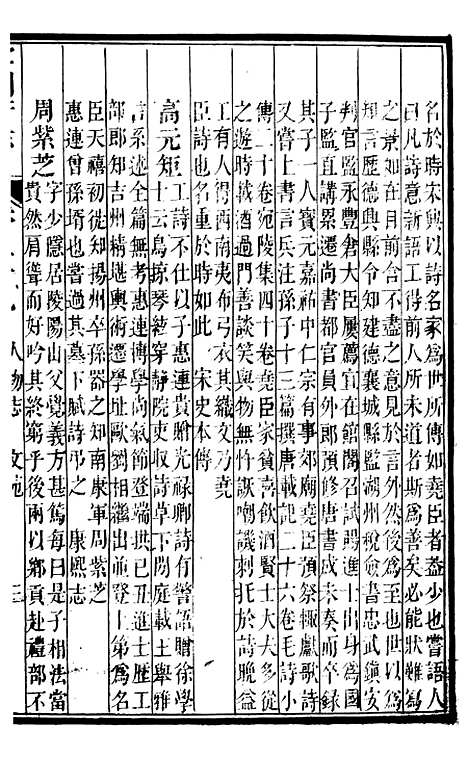 名於時宋興以詩名家為世所傳如堯臣者葢少也嘗語人
曰凡詩意新語工得前人所未道者斯為善矣必能狀難寫
之景如在目前含不盡之意見於言外然後為至也世以為
知言歷德興縣令知建德襄城縣監湖州稅僉書忠武鎮安
判官監永豐倉大臣屢薦宜在館閣召試賜進士出身為國
子監直講累遷尚書都官員外郎預修唐書成未奏而卒錄
其子一人寶元嘉祐中仁宗有事郊廟堯臣預祭輒獻歌詩
又嘗上書言兵注孫子十三篇撰唐載記二十六卷毛詩小
傳二十卷宛陵集四十卷堯臣家貧喜飲酒賢士大夫多從
之遊時載酒過門善談笑與物無忤詼嘲譏刺托於詩晚益
工有人得西南夷布弓衣其織文乃堯
臣詩也名重於時如此 宋史本傳
高元矩 工詩不仕以子惠連貴贈光祿卿詩有警語贈徐學
士云烏掠琴牀穿靜院吏収詩草下閑庭載王舉雅
言系述全篇無考惠連博學尚氣節登端拱己丑進士歷工
部郎知吉州精堪輿術遷學址歐劉相繼出前登上第為名
臣天禧初徙知揚州卒孫器之知南康軍周紫芝
惠連曾孫壻也嘗過其墓下賦詩弔之 康熙志
周紫芝 字少隱居陵陽山父覺義方甚篤每曰是子相法當
貴然肩聳而好吟其終窮乎後兩以鄉貢赴禮部不
人物志 文苑 三